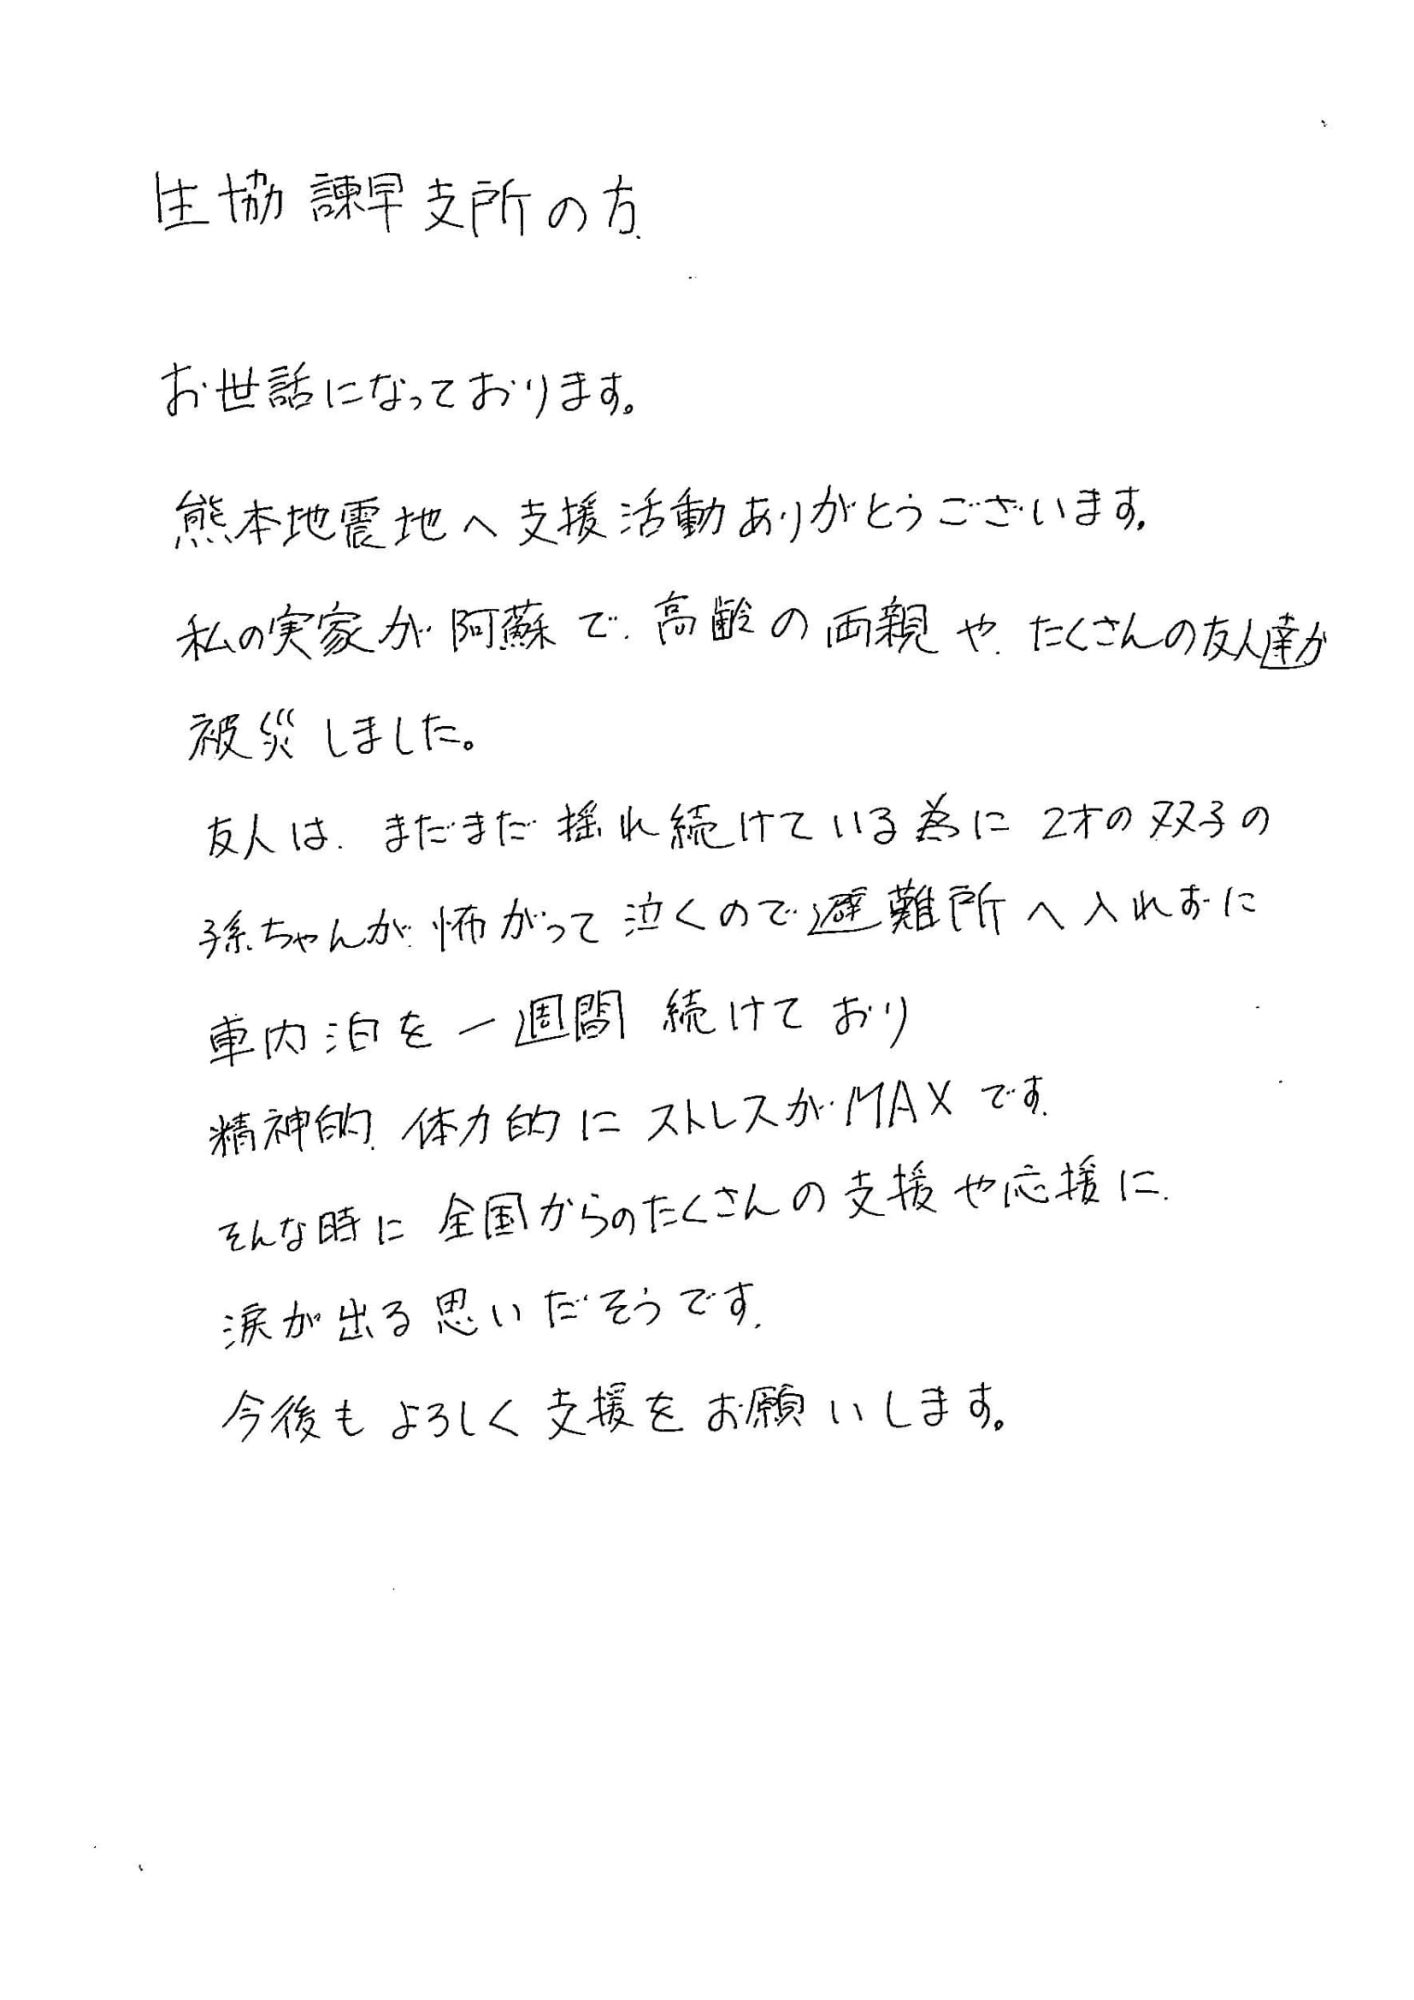 生協諫早支所の方
お世話になっております。
熊本地震地へ支援活動ありがとうございます。
私の実家が阿蘇で、高齢の両親や、たくさんの友人達が
被災しました。
友人は、まだまだ揺れ続けている為に2才の双子の
孫ちゃんが怖がって泣くので避難所へ入れずに
車内泊を一週間続けており
精神的、体力的にストレスがMAXです。
そんな時に全国からのたくさんの支援や応援に、
涙が出る思いだそうです。
今後もよろしく支援をお願いします。